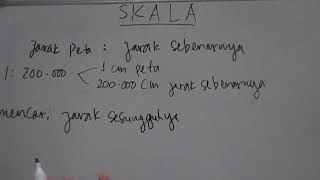 SKALA
Jarak Peta : Jarak Sebenarnya
1 : 200.000 < 1 cm peta
200.000 cm jarak sebenarnya
mencari jarak sesungguhnya